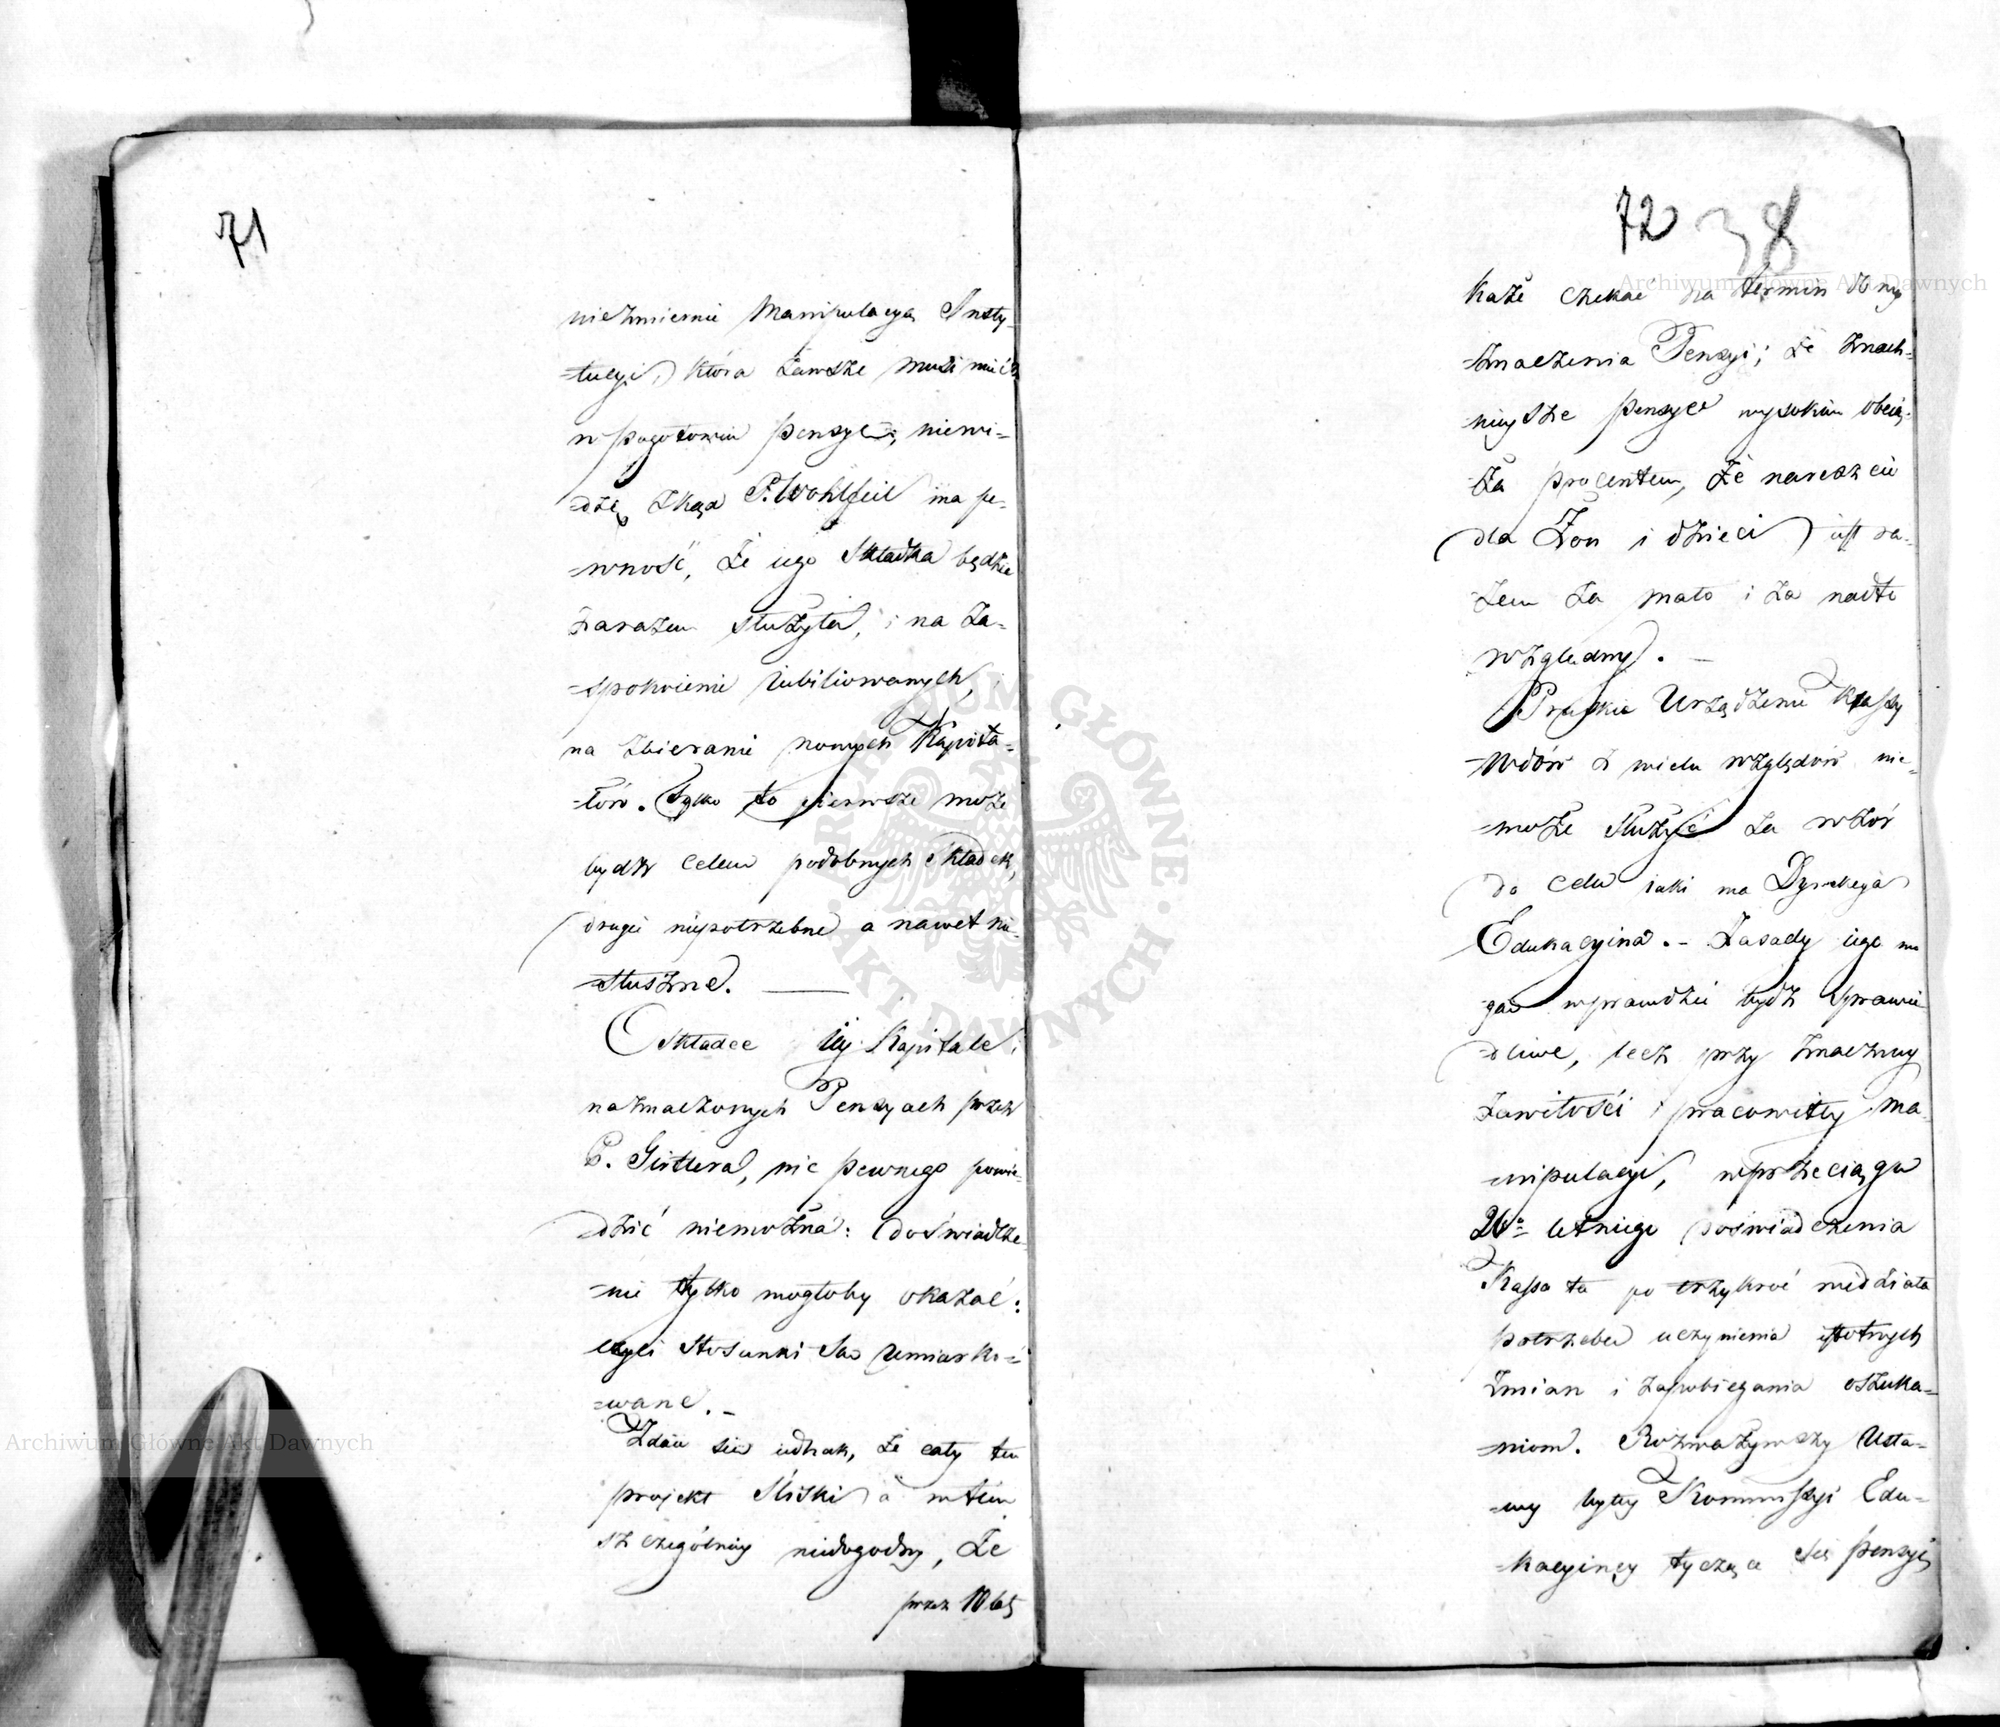 71
niezmiernie Manipulacyą Insty-
=tucyi, która zawsze musi mieć
w pogotowiu pensye; niewi=
=dzę zkąd P. Wohlfeil ma pe-
=wność, że iego Składka będzie
zarazem służyła, i na za=
=spokoienie iubiliowanych, i
na zbieranie nowych Kapita=
=łów. Tylko to pierwsze może
bydź celem podobnych składek,
drugie niepotrzebne a nawet nie-
=słuszne. —
O składce iey Kapitale i
naznaczonych Pensyach przez
P. Girtlera, nic pewnego powie-
=dzić niemożna: doświadcze-
=nie tylko mogłoby okazać:
czyli stosunki są umiarko=
=wane. –
Zdaie się iednak, że cały ten
projekt śliski a w tém
szczególniey niedogodny, że
przez 10 lat
72 38
każe czekać na termin
=znaczenia Pensyi; że znacz-
=nieysze pensye wysokim obcią-
=ża procentem, że nareszcie
dla Żon i dzieci iest ra-
zem za mało i za nadto
względny. –
Pruskie Urządzenie Kassy
=Wdów z wielu względów nie-
=może służyć za wzór
do celu iaki ma Dyrekcya
Edukacyina. – Zasady iego mo
gą wprawdzie bydź sprawie
=dliwe, lecz przy znaczney
zawiłości i pracowitey ma-
=nipulacyi, w przeciągu
letniego doświadczenia
Kassa ta po trzykroć widziała
potrzebę uczynienia istotnych
zmian i zapobiegania oszuka=
=niom. Rozważywszy Usta=
=wy byłey Kommissyi Edu=
=kacyiney tyczące się pensyi